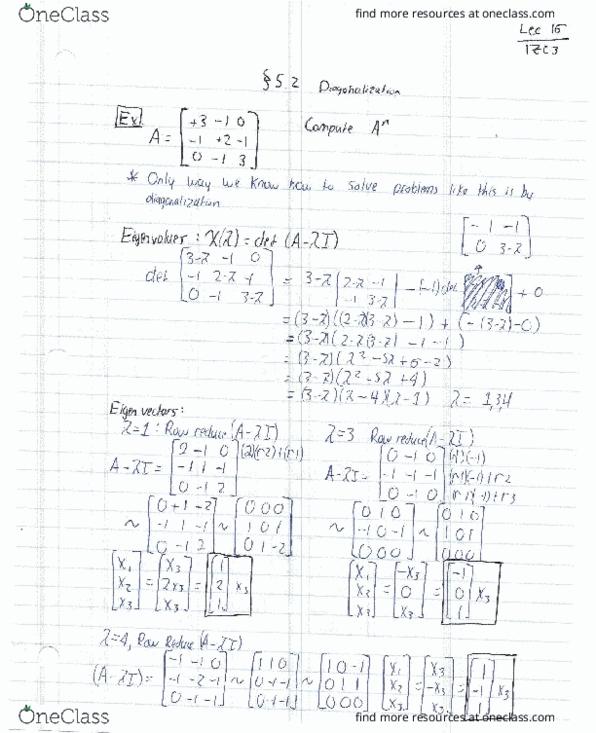 OneClass
find more resources at oneclass.com
Lec 16
17C3
§ 5.2 Diagonalization
Ex) A = [+3 -1 0; -1 +2 -1; 0 -1 3] Compute Aⁿ
* Only way we know how to solve problems like this is by
diagonalization
Eigenvalues: χ(λ) = det (A-λI)
[-1 -1; 0 3-λ]
det [3-λ -1 0; -1 2-λ -1; 0 -1 3-λ] = 3-λ |2-λ -1; -1 3-λ| - (-1)det + 0
= (3-λ)((2-λ)(3-λ) - 1) + (-(3-λ)-0)
= (3-λ)(2-λ(3-λ) - 1 - 1)
= (3-λ)(λ² - 5λ + 6 - 2)
= (3-λ)(λ² - 5λ + 4)
= (3-λ)(λ-4)(λ-1) λ = 1,3,4
Eigen vectors:
λ=1: Row reduce (A-λI)
A-λI = [2 -1 0; -1 1 -1; 0 -1 2] (2)(r2)+(r1)
~ [0 +1 -2; -1 1 -1; 0 -1 2] ~ [0 0 0; 1 0 1; 0 1 -2]
[x₁; x₂; x₃] = [x₃; 2x₃; x₃] = [1; 2; 1] x₃
λ=3 Row reduce (A-λI)
A-λI = [0 -1 0; -1 -1 -1; 0 -1 0] (r1)(-1) (r1)(-1)+r2 (r1)(-1)+r3
~ [0 1 0; -1 0 -1; 0 0 0] ~ [0 1 0; 1 0 1; 0 0 0]
[x₁; x₂; x₃] = [-x₃; 0; x₃] = [-1; 0; 1] x₃
λ=4, Row Reduce (A-λI)
(A-λI) = [-1 -1 0; -1 -2 -1; 0 -1 -1] ~ [1 1 0; 0 -1 -1; 0 -1 -1] ~ [1 0 -1; 0 1 1; 0 0 0] [x₁; x₂; x₃] = [x₃; -x₃; x₃] = [1; -1; 1] x₃
OneClass
find more resources at oneclass.com